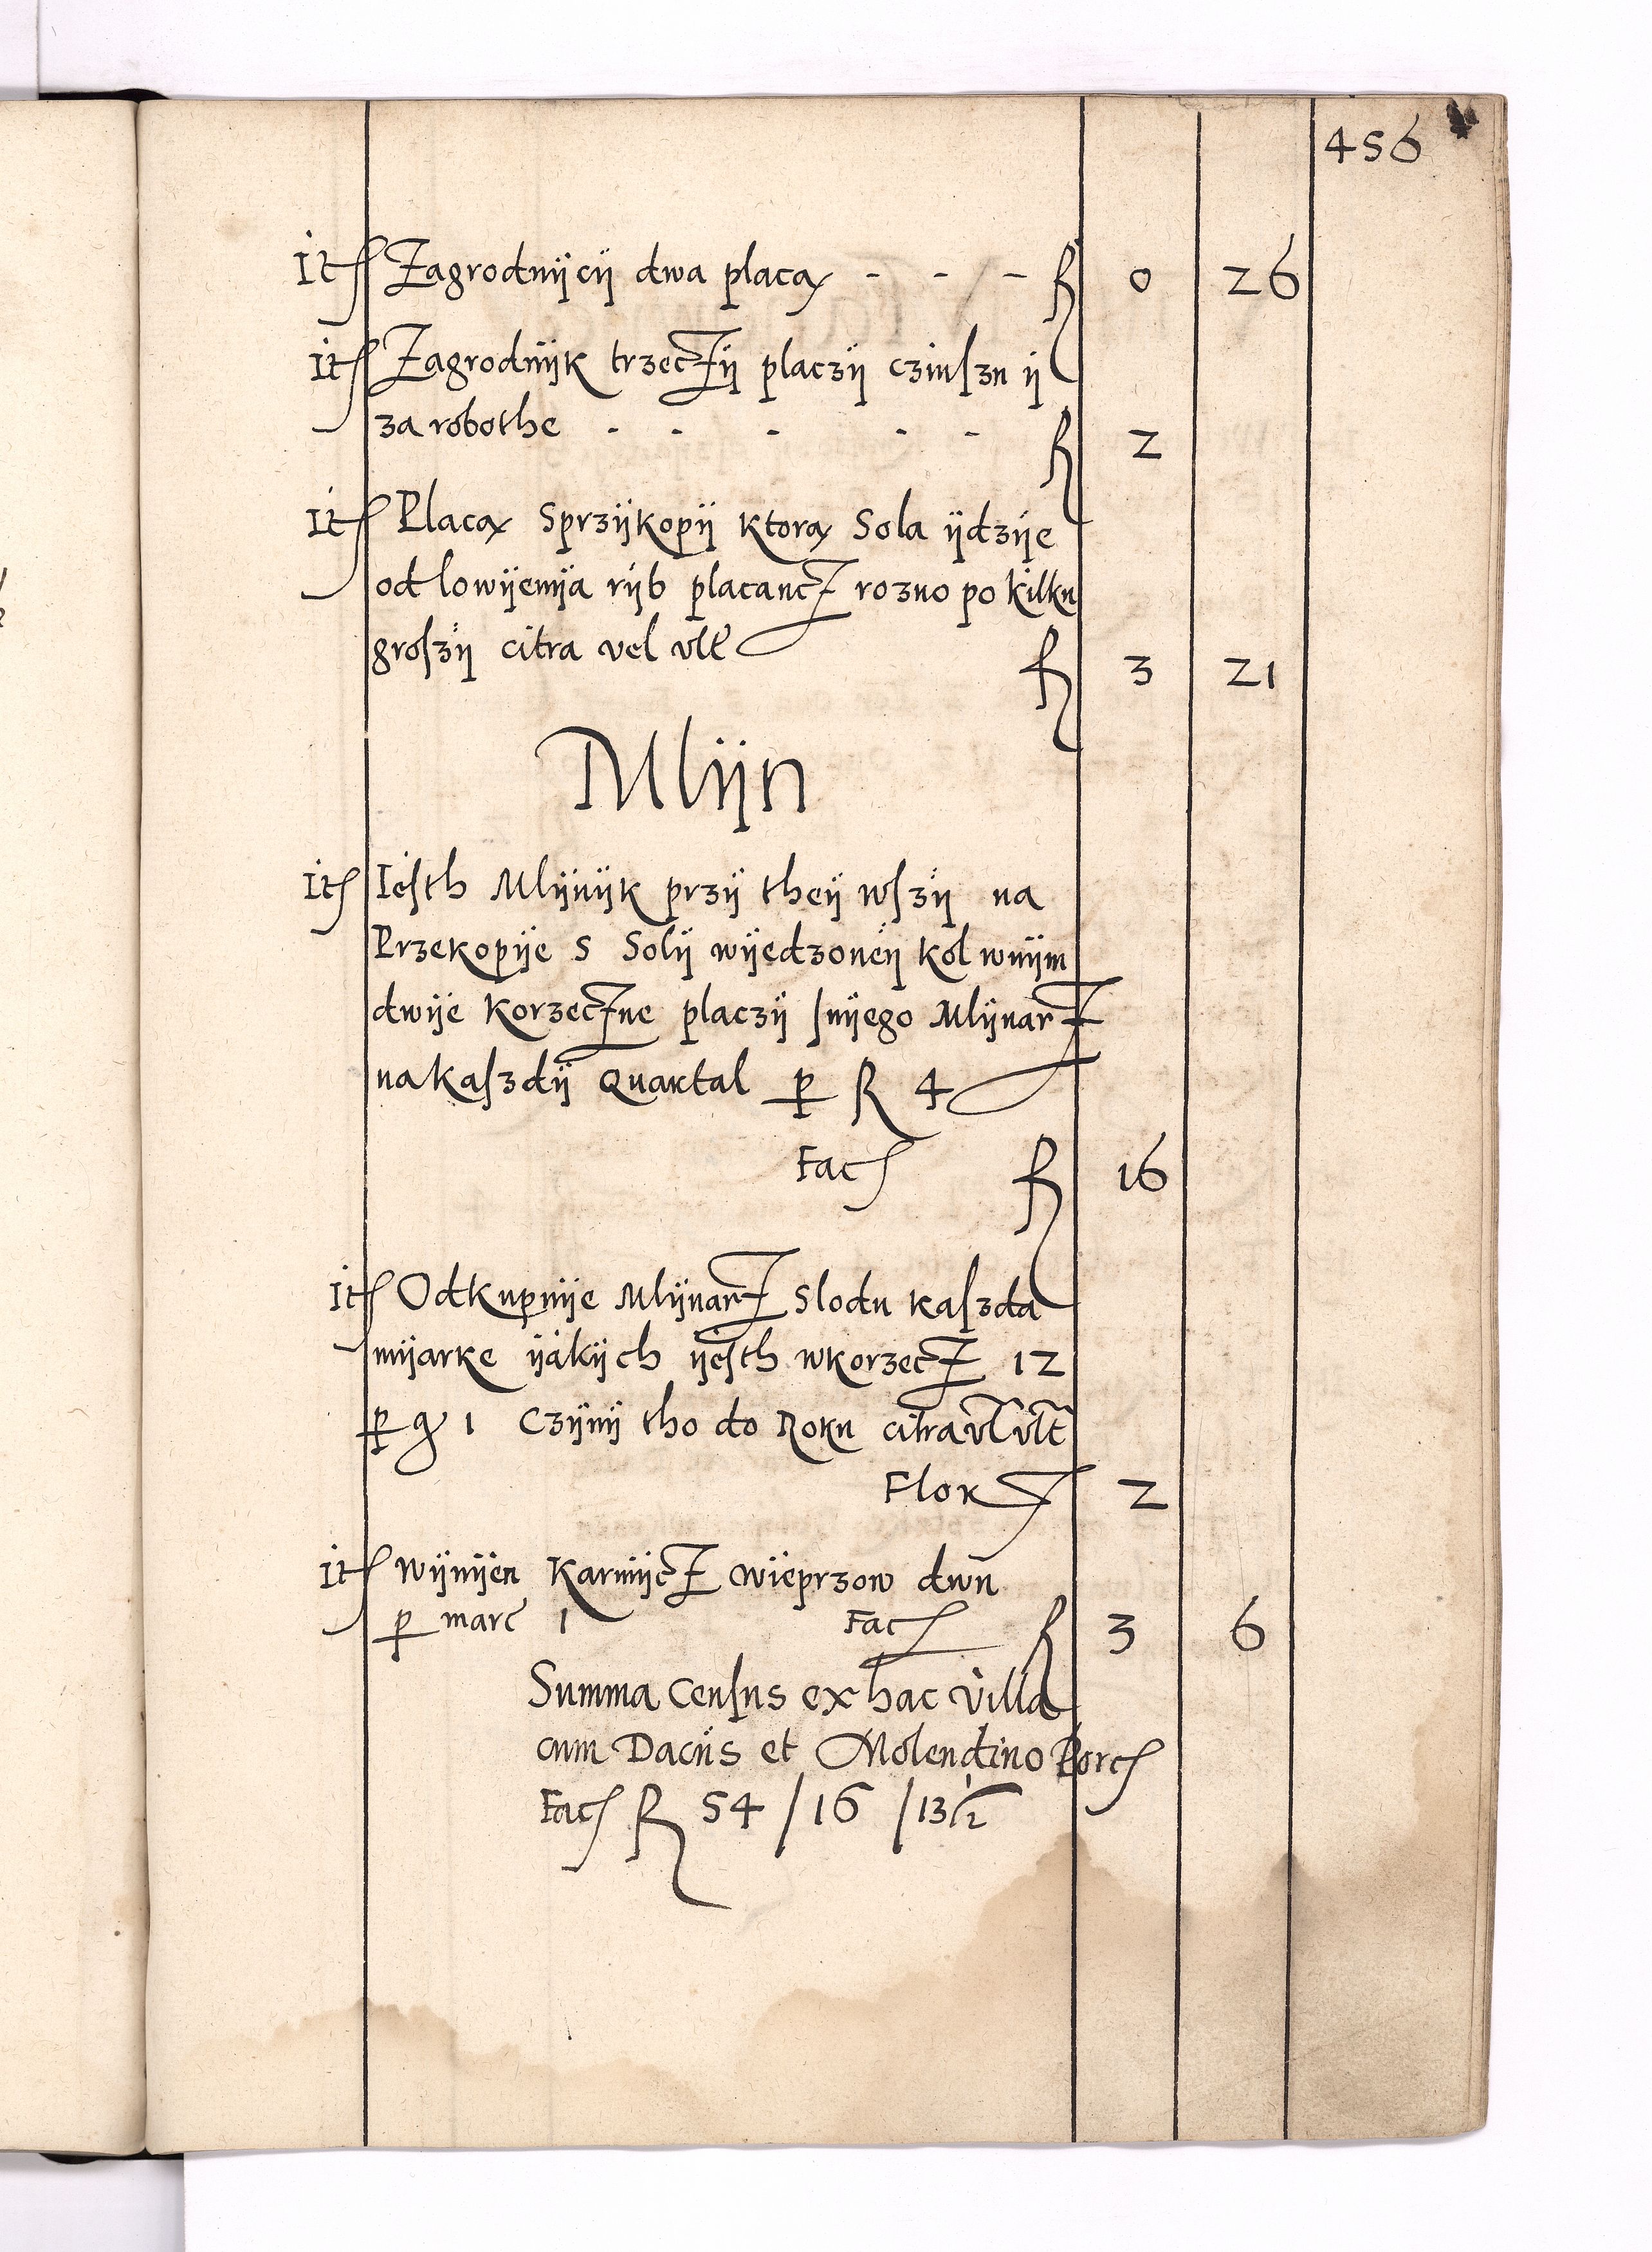 456
Itē Zagrodnÿcÿ dwa placą - - - fl 0 26
Itē Zagrodnÿk trzeczÿ placzÿ czinſzu ÿ
za robothe - - - - - fl 2
Itē Placą Sprzÿkopÿ ktorą Sola ÿdzÿe
od lowÿenÿa rÿb placancz rozno po kilku
groſzÿ citra vel vlt̃ fl 3 21
Mlÿn
Itē Ieſth Mlÿnÿk przÿ theÿ wſzÿ na
Przekopÿe S Solÿ wÿedzoneÿ kol wnÿm
dwÿe korzeczne placzÿ ſnÿego Mlÿnarz
na kaſzdÿ Quartal p̱ fl 4
Facē fl 16
Itē Odkupuÿe Mlÿnarz Slodu kaſzda
mÿarke ÿakÿch ÿeſth wkorzecz 12
p̱ gͬ 1 Czÿnÿ tho do Roku citra vl̃ vlt̃
Flor 2
Itē wÿnÿen Karmÿcz wieprzow dwu
p̱ marc̃ 1 Facē fl 3 6
Summa Cenſus ex hac villa
cum Daciis et Molendino Porcē
Facē fl 54 / 16 / 13 1/2